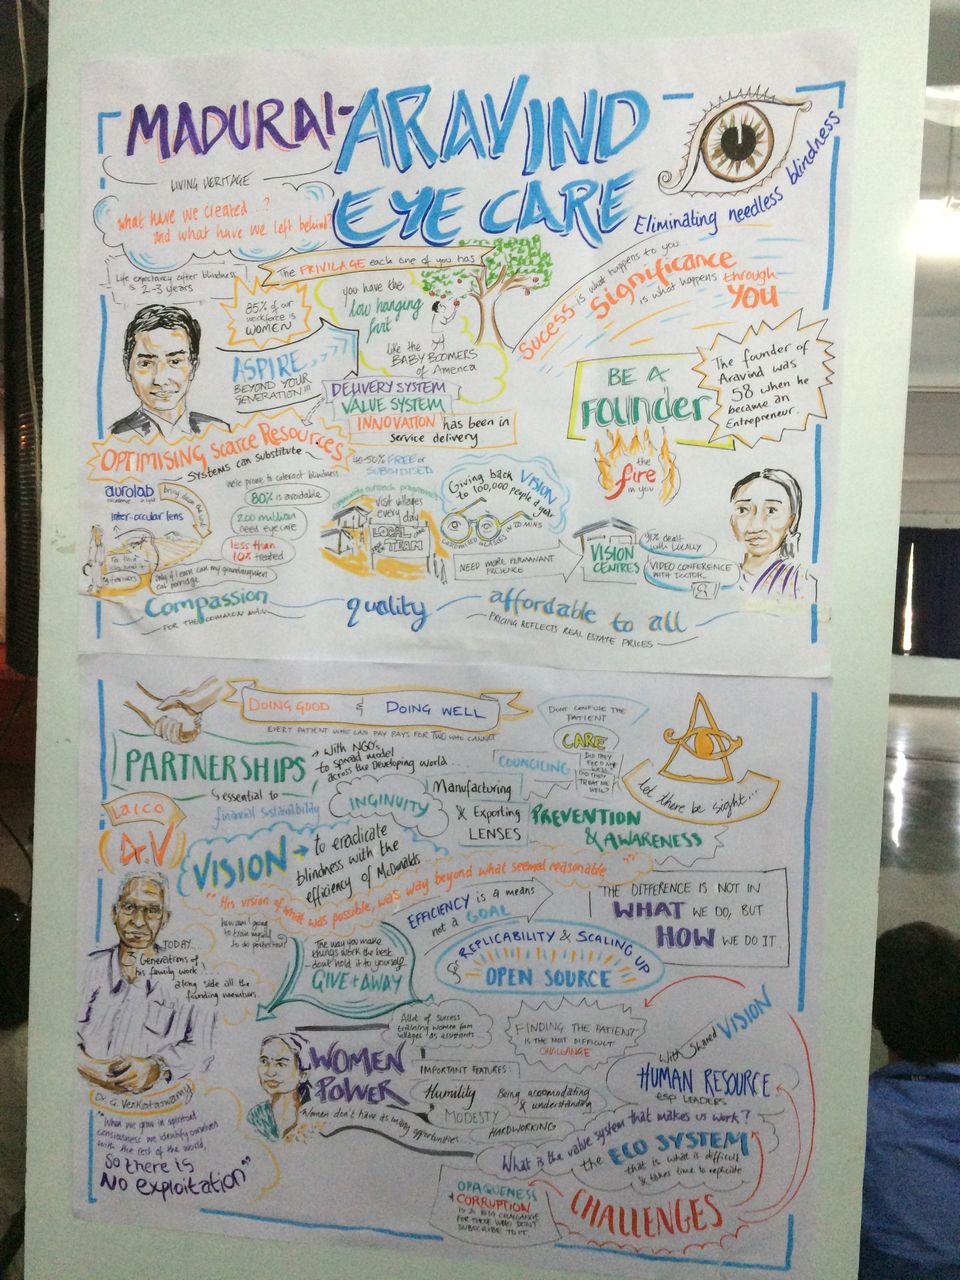 MADURAI-
ARAVIND
EYE CARE
Eliminating needless blindness
LIVING HERITAGE
What have we created...?
and what have we left behind?
Life expectancy after blindness
is 2-3 years
The PRIVILAGE each one of you has
85% of our
workforce is
WOMEN
you have the
low hanging
fruit
like the
BABY BOOMERS
of America
SUCCESS is what happens to you
Significance
is what happens through
YOU
ASPIRE
BEYOND YOUR
GENERATION!!!
DELIVERY SYSTEM
VALUE SYSTEM
INNOVATION has been in
service delivery
BE A
Founder
the
fire
in you
The founder of
Aravind was
58 when he
became an
Entrepreneur
OPTIMISING Scarce Resources
SYSTEMS can substitute
aurolab
inter-occular lens
We're prone to cataract blindness
80% is avoidable
200 million
need eye care
less than
10% treated
only if I earn can my granddaughter
eat porridge
40-50% FREE or
SUBSIDISED
community outreach programmes
visit villages
every day
LOCAL
TEAM
Giving back VISION
to 100,000 people a year
IN 20 MINS
NEED MORE PERMANANT
PRESENCE
VISION
CENTRES
91% dealt
with LOCALLY
VIDEO CONFERENCE
WITH DOCTOR
Compassion
FOR THE COMMON MAN
quality
affordable to all
PRICING REFLECTS REAL ESTATE PRICES
DOING GOOD & DOING WELL
EVERY PATIENT WHO CAN PAY PAYS FOR TWO WHO CANNOT
PARTNERSHIPS
→ With NGO's
to spread model
across the Developing world...
essential to
financial sustainability
DONT CONFUSE THE
PATIENT
CARE
COUNCILING
DID THEY
FEED ME
WELL
DID THEY
TREAT ME
WELL?
let there be sight...
INGINUITY
Manufacturing
& Exporting
LENSES
PREVENTION
& AWARENESS
Laico
Dr.V
VISION → to eradicate
blindness with the
efficiency of McDonalds
"His vision of what was possible, was way beyond what seemed reasonable"
how am I going
to train myself
to do perfection?
EFFICIENCY is a means
not a GOAL
THE DIFFERENCE IS NOT IN
WHAT WE DO, BUT
HOW WE DO IT
TODAY...
3 Generations of
his family work
along side all the
founding members
The way you make
things work the best
- dont hold it to yourself
GIVE it AWAY
for REPLICABILITY & SCALING UP
OPEN SOURCE
Dr. G. Venkataswamy
"When we grow in spiritual
consciousness we identify ourselves
with the rest of the world,
So there is
No exploitation"
WOMEN
POWER
Allot of success
training women from
villages as assistants
IMPORTANT FEATURES:
Humility
Being accomodating
& understanding
MODESTY
HARDWORKING
Women don't have as many opportunities
FINDING THE PATIENT
IS THE MOST DIFFICULT
CHALLENGE
With shared VISION
HUMAN RESOURCE
esp LEADERS
What is the value system that makes us work?
the ECO SYSTEM
that is what is difficult
& takes time to replicate
OPAQUENESS
+ CORRUPTION
IS A BIG CHALLANGE
FOR THOSE WHO DON'T
SUBSCRIBE TO IT
CHALLENGES